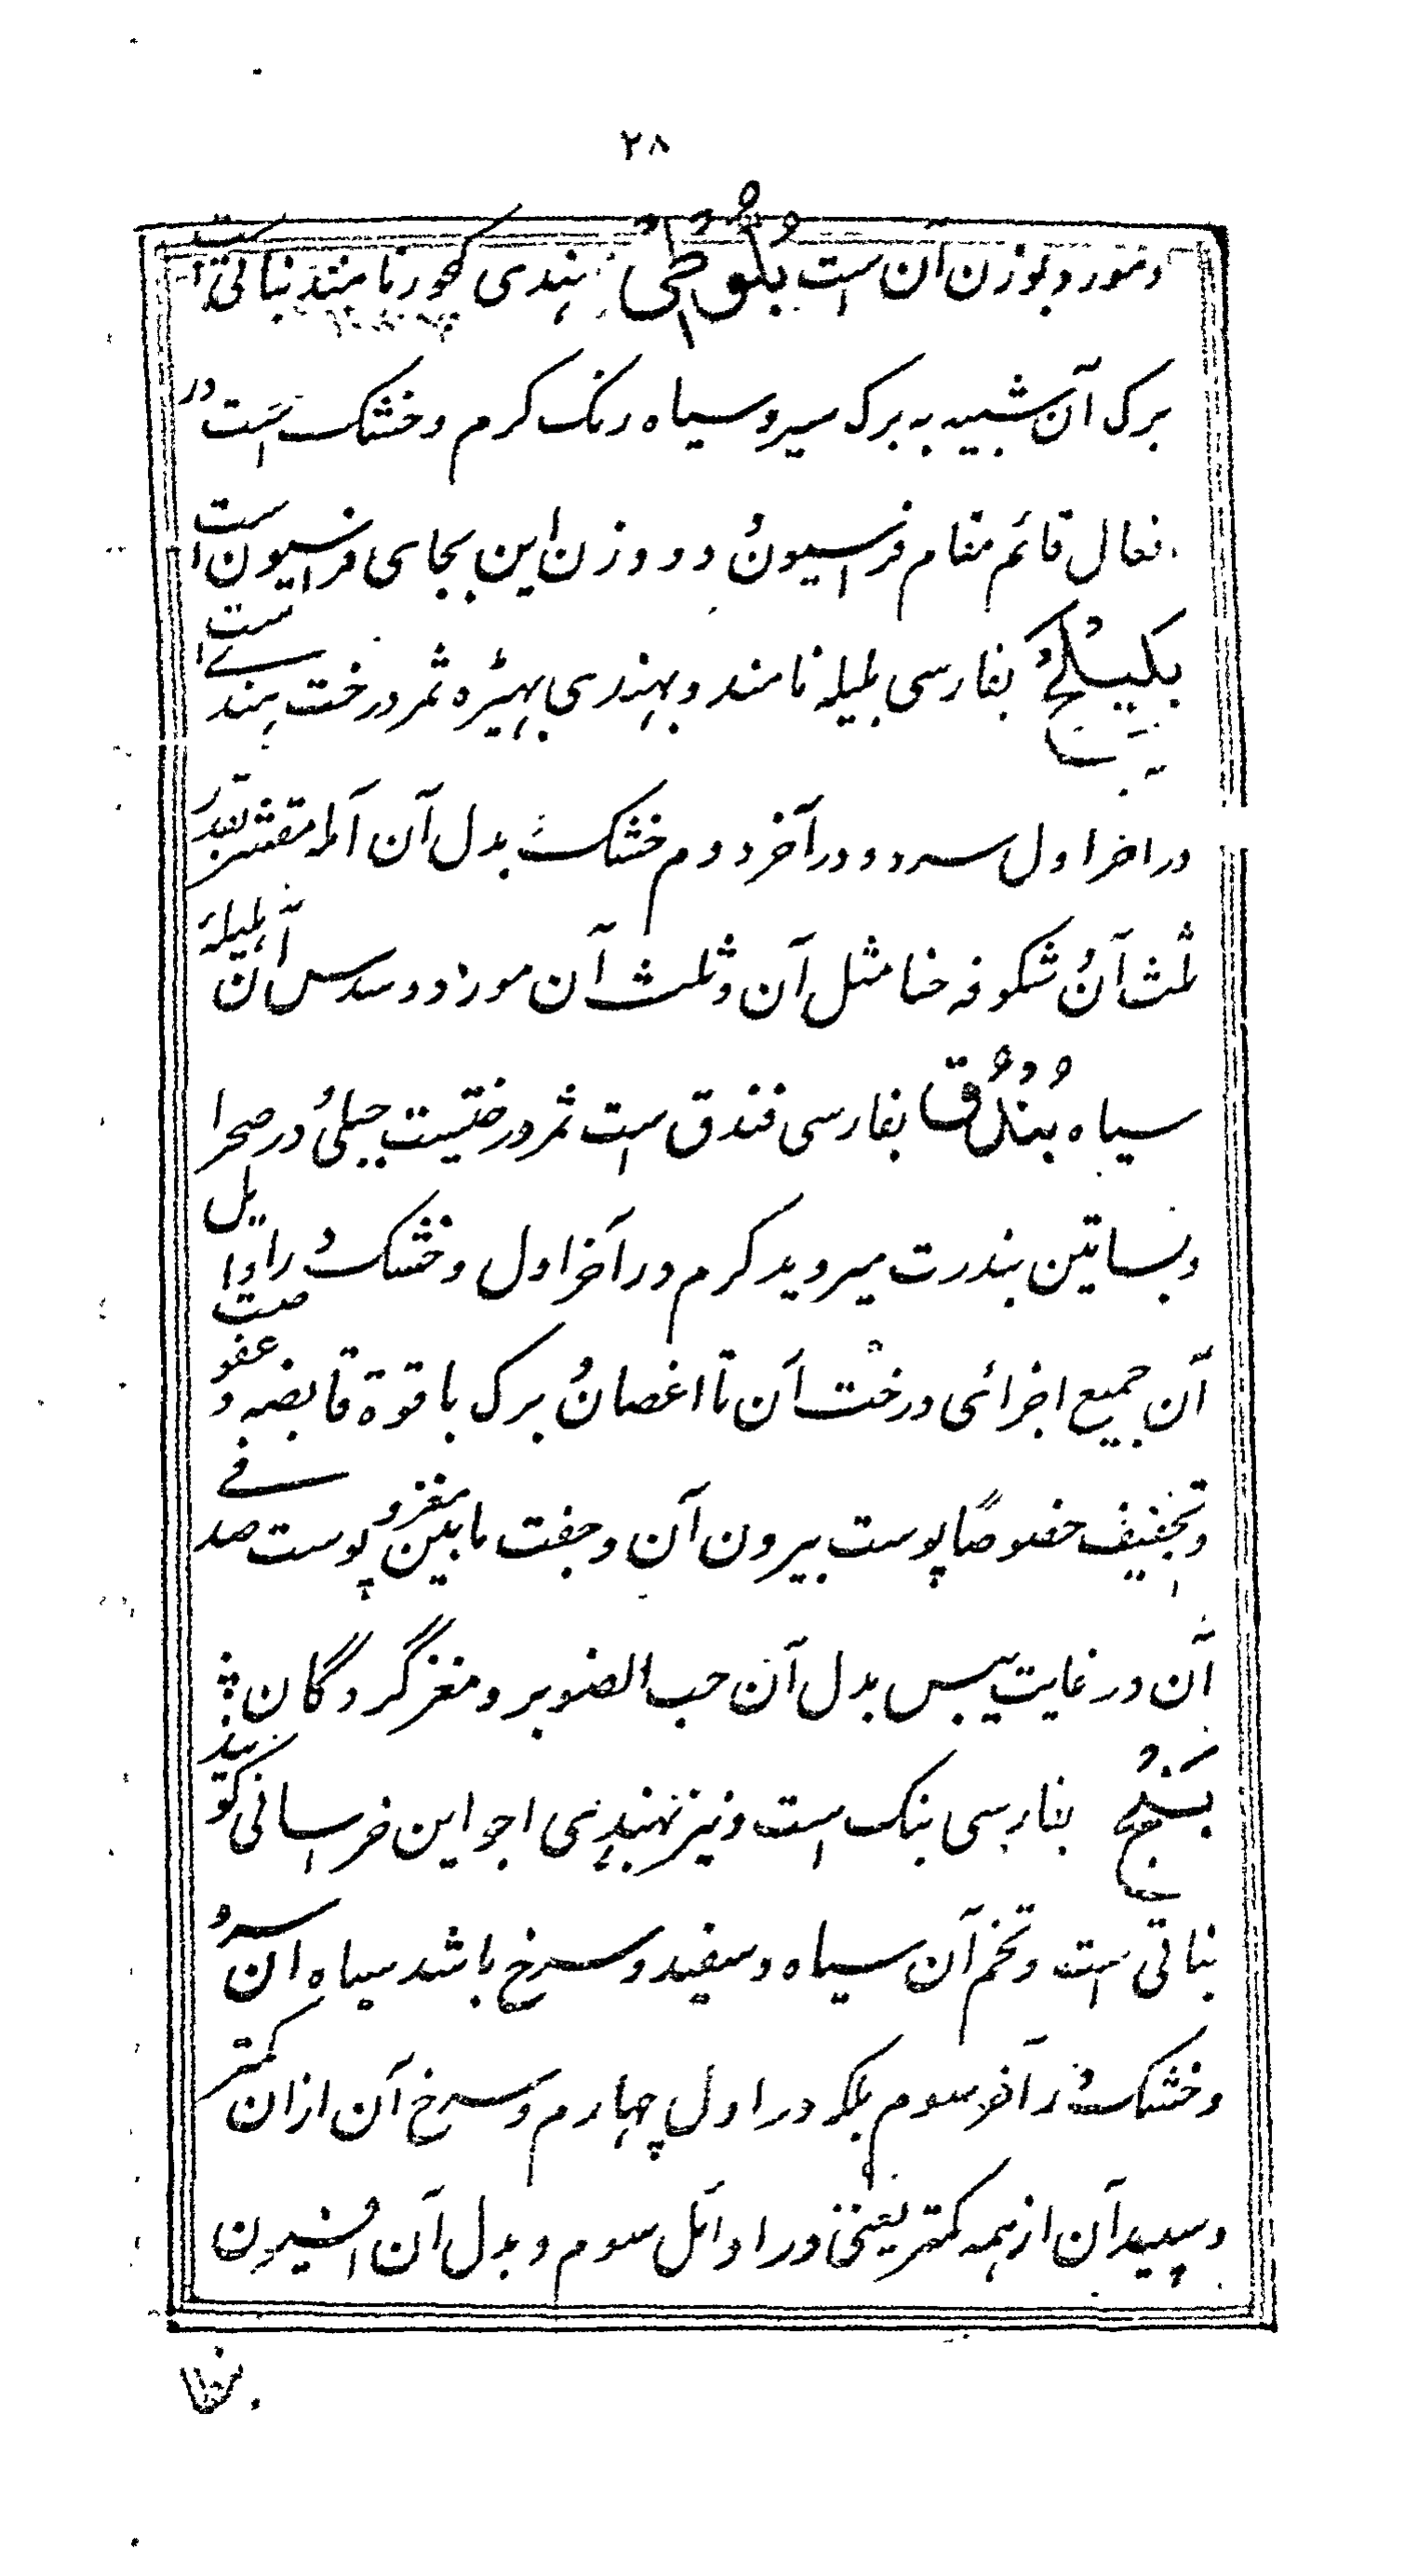 ۲۸
و مورد و بوزن آن است بلوطی بهندی کھور نامند نباتی است
برک آن شبیه به برک سیر و سیاه رنک کرم و خشک است در
افعال قائم مقام فراسیون و دو وزن این بجای فراسیون است
بلیلج بفارسی بلیله نامند و بهندی بهیڑه ثمر درخت هندے است
در اخر اول سرد و در آخر دوم خشک بدل آن آمله مقشر بقدر
ثلث آن و شکوفه حنا مثل آن و ثلث آن مورد و سدس آن هلیله
سیاه بندق بفارسی فندق است ثمر درختیست جبلی و در صحرا
و بساتین بندرت میروید کرم در آخر اول و خشک در اوایل
آن جمیع اجزائی درخت آن تا اغصان و برک با قوة قابضه و عفوصت
و تجفیف خصوصاً پوست بیرون آن و جفت مابین مغز و پوست صدفے
آن در غایت یبس بدل آن حب الصنوبر و مغز گردگان پ
بنج بفارسی بنک است و نیز بهندی اجواین خراسانی گویند
نباتی است و تخم آن سیاه و سفید و سرخ باشد سیاه آن سرد
و خشک در آخر سوم بلکه در اول چهارم و سرخ آن ازان کمتر
و سپید آن از همه کمتر یعنی در اوائل سوم و بدل آن افیون